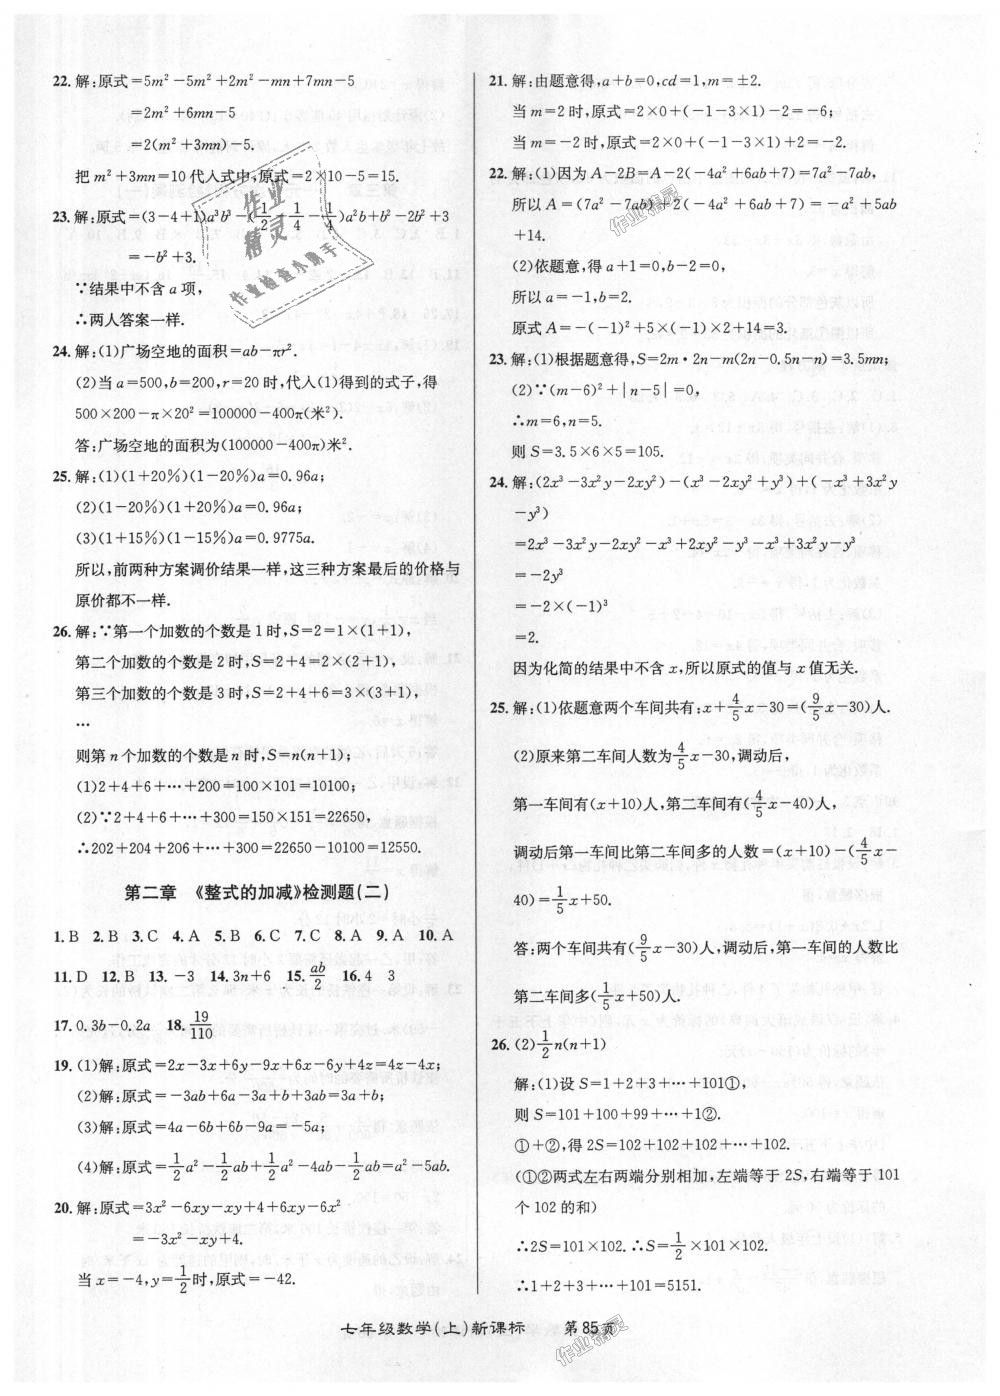 22.解:原式=5m²-5m²+2m²-mn+7mn-5
=2m²+6mn-5
=2(m²+3mn)-5.
把 m²+3mn=10代人式中,原式=2×10-5=15.
23.解:原式=(3-4+1)a³b³-(1/2-1/4-1/4)a²b+b²-2b²+3
=-b²+3.
∵结果中不含 a 项,
∴两人答案一样.
24.解:(1)广场空地的面积=ab-πr².
(2)当 a=500,b=200,r=20时,代人(1)得到的式子,得
500×200-π×20²=100000-400π(米²).
答:广场空地的面积为(100000-400π)米².
25.解:(1)(1+20%)(1-20%)a=0.96a;
(2)(1-20%)(1+20%)a=0.96a;
(3)(1+15%)(1-15%)a=0.9775a.
所以,前两种方案调价结果一样,这三种方案最后的价格与
原价都不一样.
26.解:∵第一个加数的个数是1时,S=2=1×(1+1),
第二个加数的个数是2时,S=2+4=2×(2+1),
第三个加数的个数是3时,S=2+4+6=3×(3+1),
…
则第 n 个加数的个数是 n 时,S=n(n+1);
(1)2+4+6+…+200=100×101=10100;
(2)∵2+4+6+…+300=150×151=22650,
∴202+204+206+…+300=22650-10100=12550.
第二章 《整式的加减》检测题(二)
1.B 2.B 3.C 4.A 5.B 6.C 7.C 8.A 9.A 10.A
11.D 12.B 13.-3 14.3n+6 15.ab/2 16.4 3
17.0.3b-0.2a 18.19/110
19.(1)解:原式=2x-3x+6y-9x+6x-6y+4z=4z-4x;
(2)解:原式=-3ab+6a-3a+b+3ab=3a+b;
(3)解:原式=4a-6b+6b-9a=-5a;
(4)解:原式=1/2a²-1/2ab+1/2a²-4ab-1/2ab=a²-5ab.
20.解:原式=3x²-6xy-xy+4+6xy-6x²
=-3x²-xy+4.
当 x=-4,y=1/2时,原式=-42.
21.解:由题意得,a+b=0,cd=1,m=±2.
当 m=2时,原式=2×0+(-1-3×1)-2=-6;
当 m=-2时,原式=2×0+(-1-3×1)+2=-2.
22.解:(1)因为 A-2B=A-2(-4a²+6ab+7)=7a²-7ab,
所以 A=(7a²-7ab)+2(-4a²+6ab+7)=-a²+5ab
+14.
(2)依题意,得 a+1=0,b-2=0,
所以 a=-1,b=2.
原式 A=-(-1)²+5×(-1)×2+14=3.
23.解:(1)根据题意得,S=2m·2n-m(2n-0.5n-n)=3.5mn;
(2)∵(m-6)²+|n-5|=0,
∴m=6,n=5.
则 S=3.5×6×5=105.
24.解:(2x³-3x²y-2xy²)-(x³-2xy²+y³)+(-x³+3x²y
-y³)
=2x³-3x²y-2xy²-x³+2xy²-y³-x³+3x²y-y³
=-2y³
=-2×(-1)³
=2.
因为化简的结果中不含 x,所以原式的值与 x 值无关.
25.解:(1)依题意两个车间共有:x+4/5x-30=(9/5x-30)人.
(2)原来第二车间人数为4/5x-30,调动后,
第一车间有(x+10)人,第二车间有(4/5x-40)人,
调动后第一车间比第二车间多的人数=(x+10)-(4/5x-
40)=1/5x+50.
答:两个车间共有(9/5x-30)人,调动后,第一车间的人数比
第二车间多(1/5x+50)人.
26.(2)1/2n(n+1)
解:(1)设 S=1+2+3+…+101①,
则 S=101+100+99+…+1②.
①+②,得2S=102+102+102+…+102.
(①②两式左右两端分别相加,左端等于2S,右端等于101
个102的和)
∴2S=101×102.∴S=1/2×101×102.
∴1+2+3+…+101=5151.
七年级数学(上)新课标 第85页
作业精灵
作业检查小助手
作业精灵
作业精灵